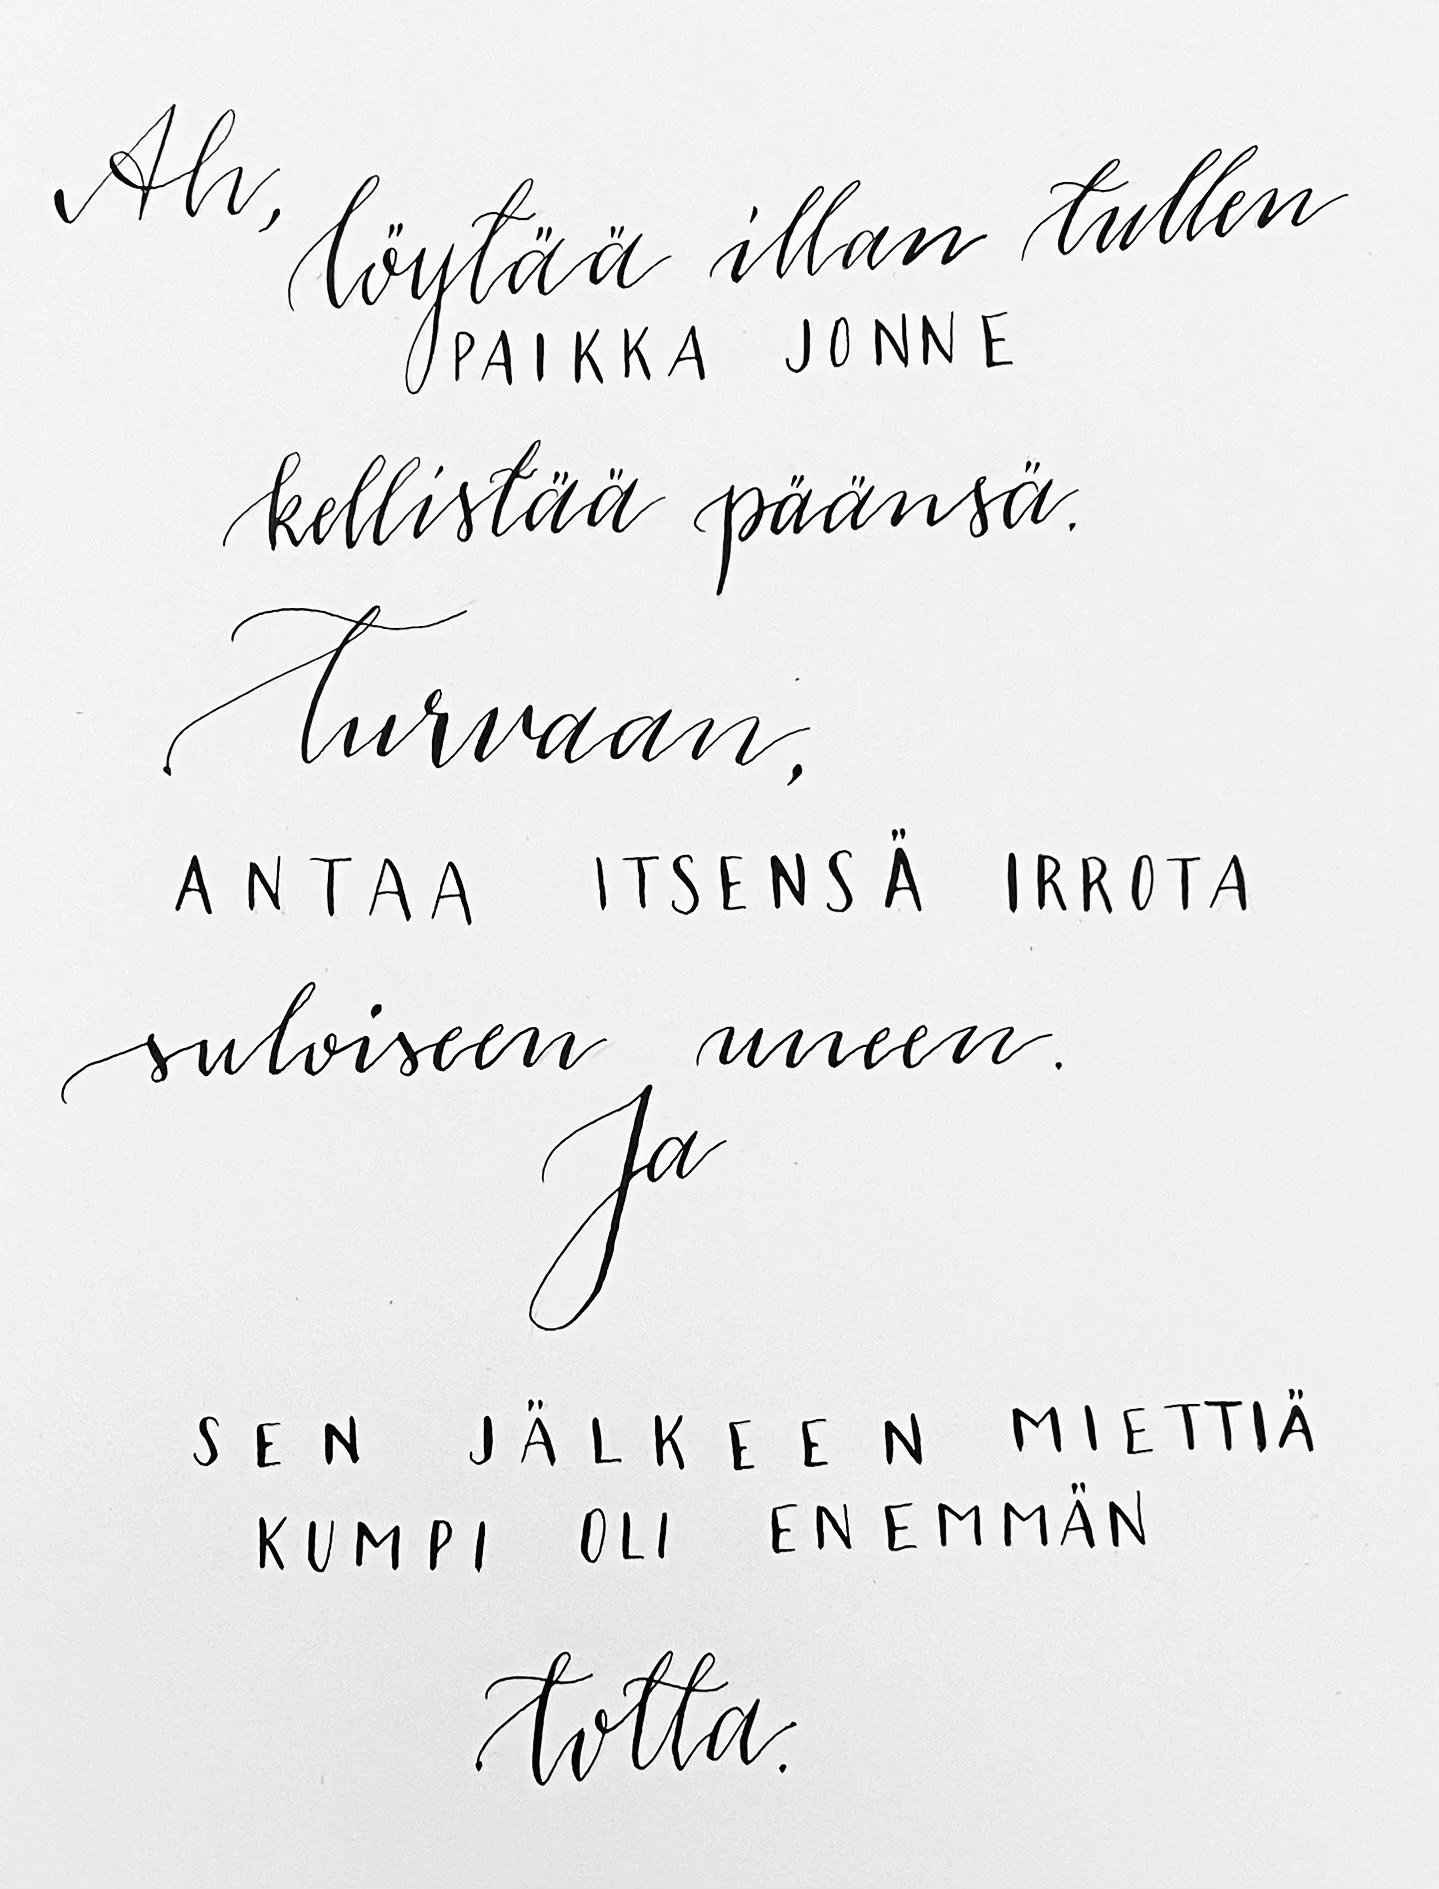 Ah, löytää illan tullen
PAIKKA JONNE
kellistää päänsä.
Turvaan,
ANTAA ITSENSÄ IRROTA
suloiseen uneen.
Ja
SEN JÄLKEEN MIETTIÄ
KUMPI OLI ENEMMÄN
totta.